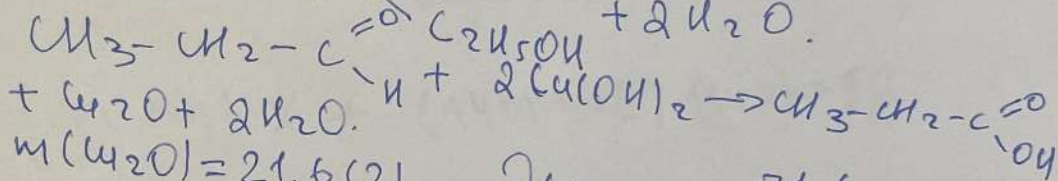 CH3-CH2-C =O C2H5OH + 2H2O.
\H + 2Cu(OH)2 → CH3-CH2-C =O
+ Cu2O + 2H2O. \OH
m(Cu2O) = 21,6 (г)